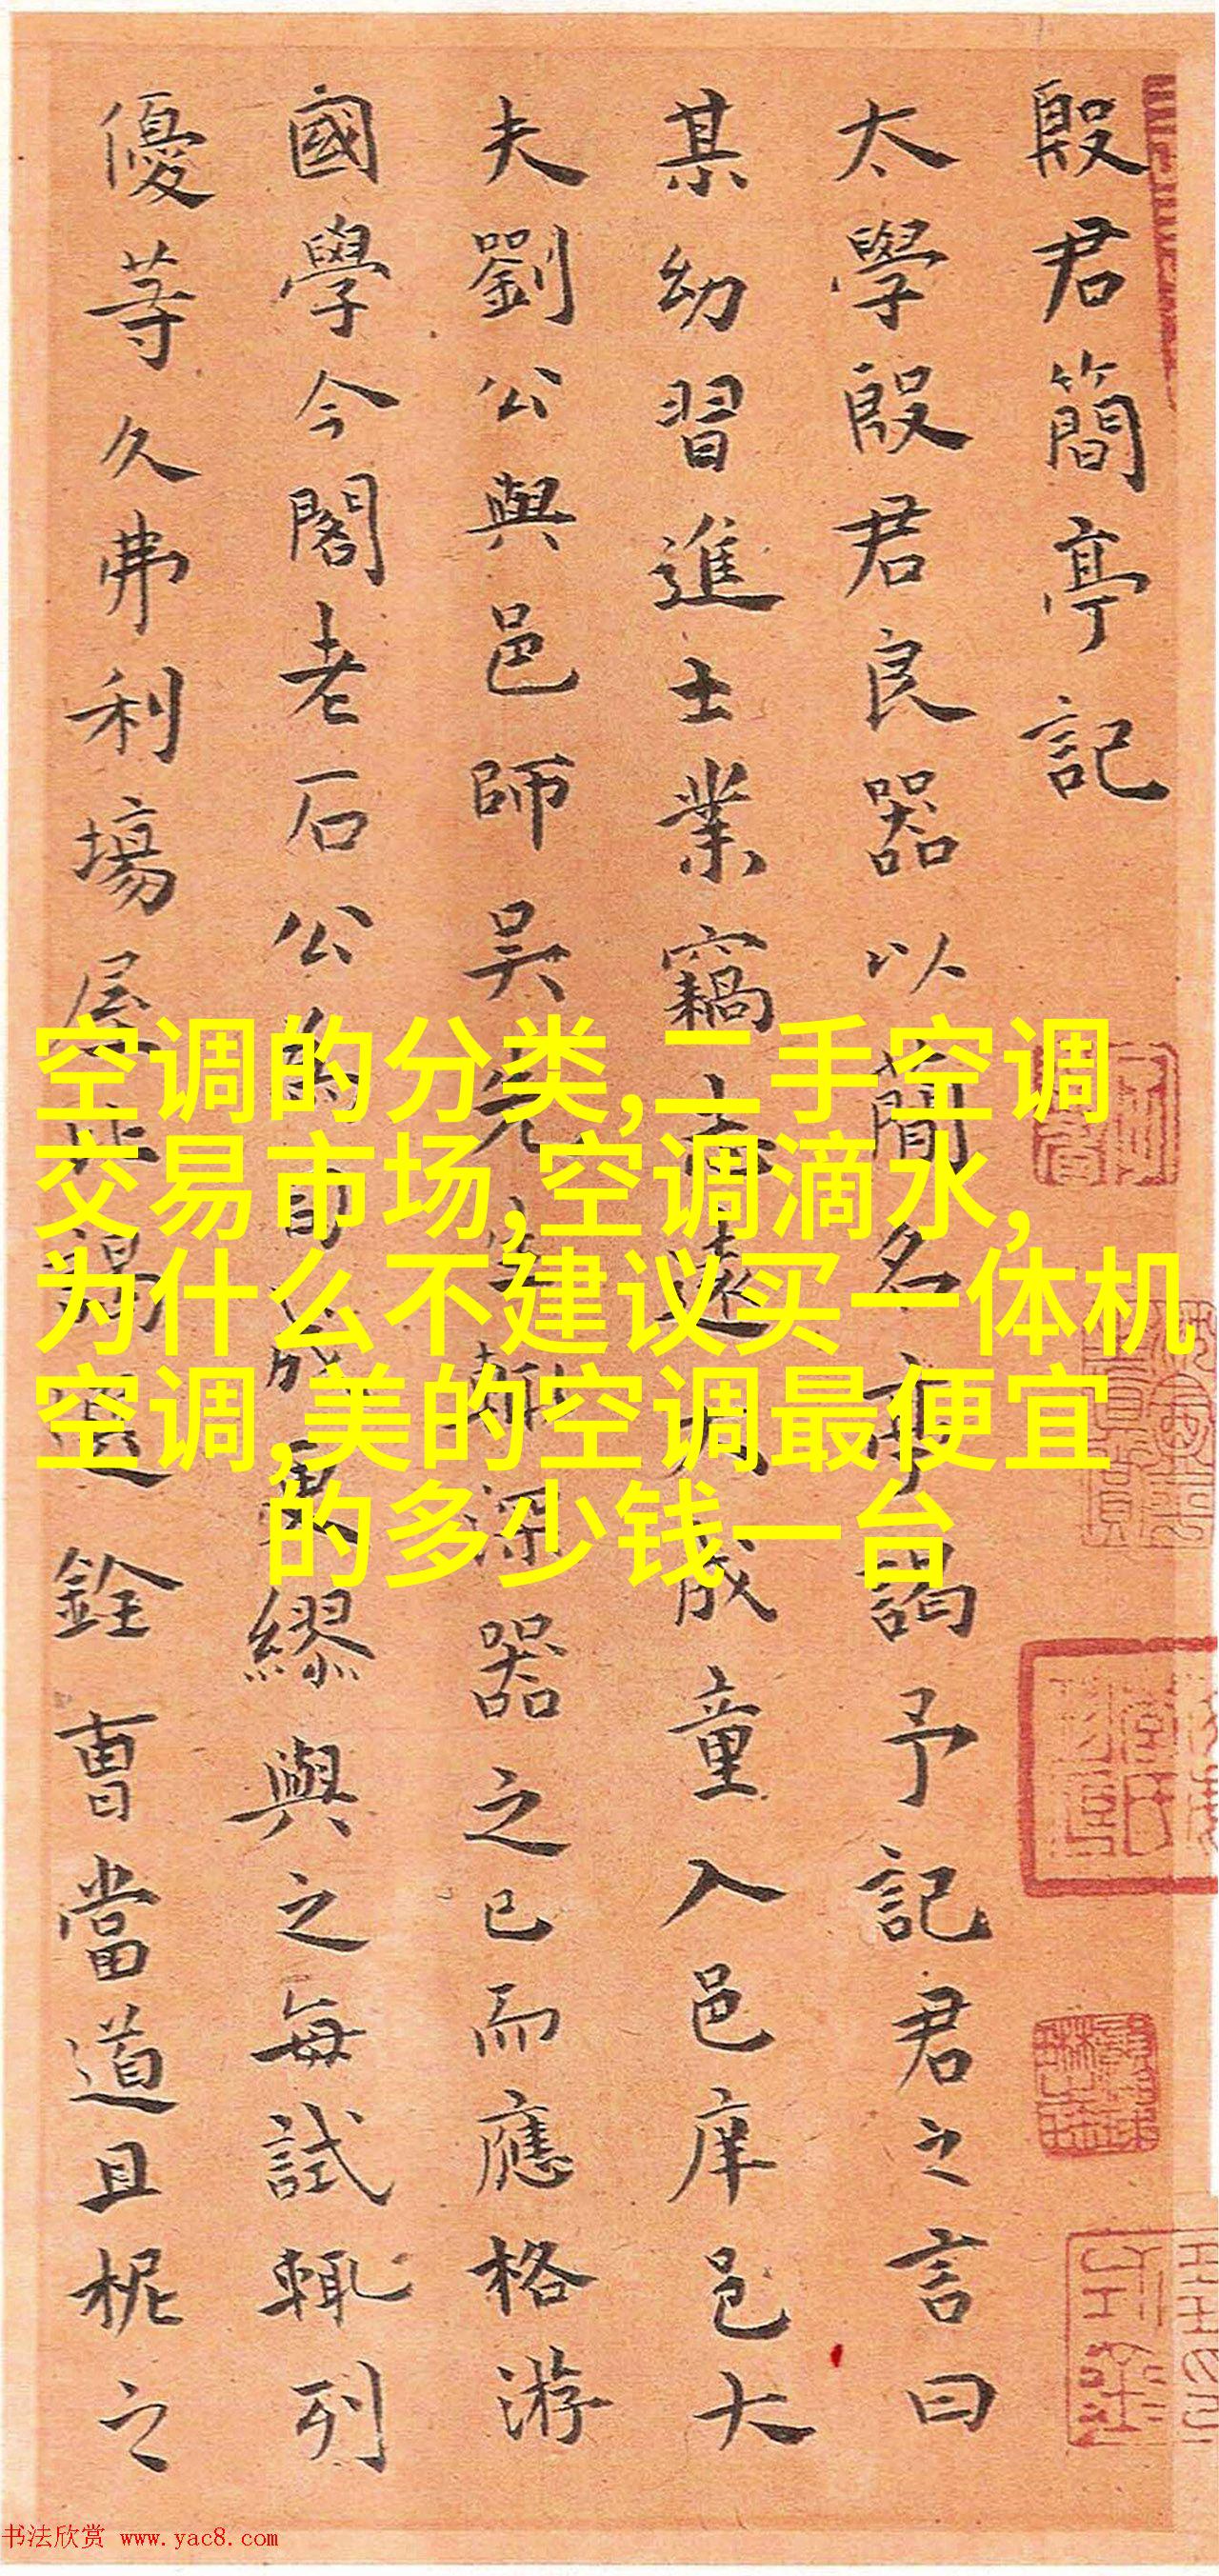 殷君簡亭記
太學殷君良器以簡名亭謁予記君之言曰
某幼習進士業竊志遠大成童入邑庠邑大
夫劉公與邑師吳先生輙深器之已而應格游
國學今閣老石公為司成繆與之每試輒列
優等久弗利場屋比謁選銓曹當道且柅之
空调的分类,二手空调
交易市场,空调滴水,
为什么不建议买一体机
空调,美的空调最便宜
的多少钱一台
书法欣赏 www.yac8.com